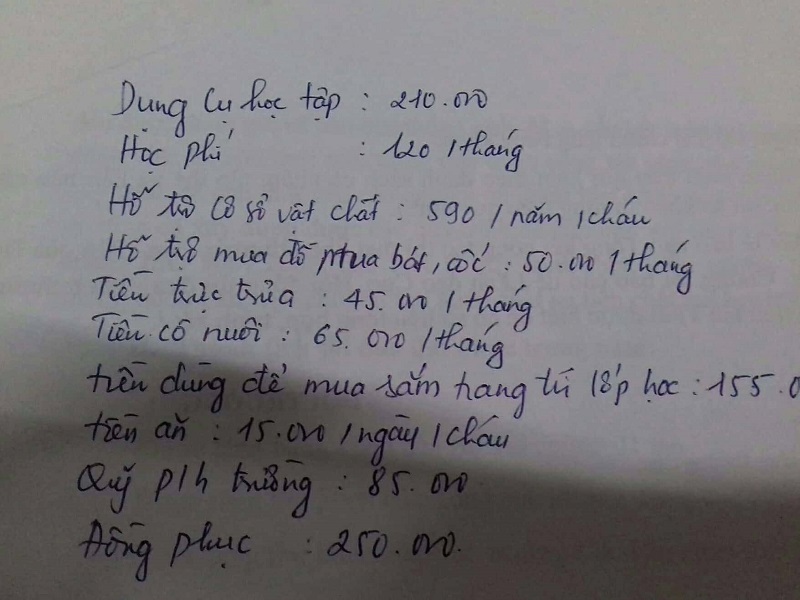 Dụng cụ học tập : 210.000
Học phí : 120 /tháng
Hỗ trợ cơ sở vật chất : 590 / năm /cháu
Hỗ trợ mua đồ phua bát, cốc : 50.000 /tháng
Tiền trực trưa : 45.000 /tháng
Tiền cô nuôi : 65.000 /tháng
tiền dùng để mua sắm trang trí lớp học : 155.0
tiền ăn : 15.000 /ngày /cháu
Quỹ p/h trường : 85.000
Đồng phục : 250.000.